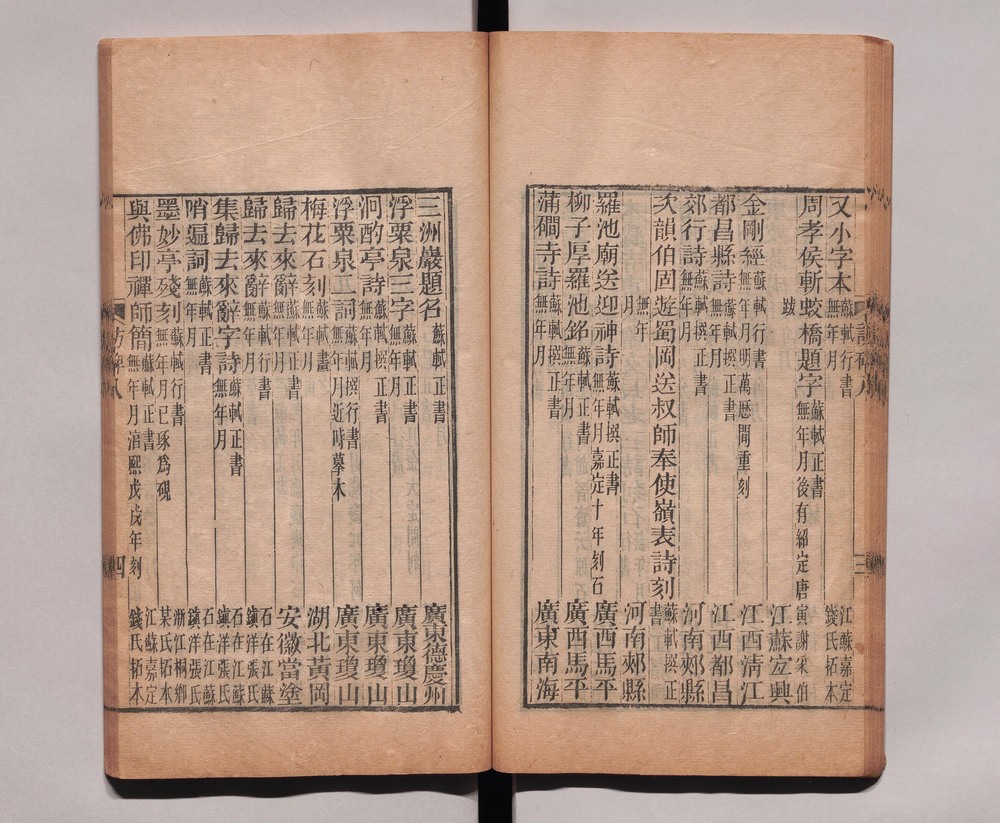 又小字本 蘇軾行書 無年月 江蘇嘉定 錢氏拓本
周孝侯斬蛟橋題字 蘇軾正書 無年月後有紹定唐 寅謝采伯
跋 江蘇宜興
金剛經 蘇軾行書 無年月明萬歷間重刻 江西清江
都昌縣詩 蘇軾撰正書 無年月 江西都昌
郊行詩 蘇軾撰正書 無年月 河南郟縣
次韻伯固遊蜀岡送叔師奉使嶺表詩刻 蘇軾撰正 書
無年 月 河南郟縣
羅池廟送迎神詩 蘇軾撰正書 無年月嘉定十年刻石 廣西馬平
柳子厚羅池銘 蘇軾正書 無年月 廣西馬平
蒲磵寺詩 蘇軾撰正書 無年月 廣東南海
三洲巖題名 蘇軾正書 廣東德慶州
浮粟泉三字 蘇軾正書 無年月 廣東瓊山
泂酌亭詩 蘇軾撰正書 無年月 廣東瓊山
浮粟泉工詞 蘇軾撰行書 無年月近時摹本 廣東瓊山
梅花石刻 蘇軾畫 無年月 湖北黃岡
歸去來辭 蘇軾正書 無年月 安徽當塗
歸去來辭 蘇軾行書 無年月 石在江蘇 鎮洋張氏
集歸去來辭字詩 蘇軾正書 無年月 石在江蘇 鎮洋張氏
哨遍詞 蘇軾正書 無年月 石在江蘇 鎮洋張氏
墨妙亭殘刻 蘇軾行書 無年月已琢為硯 浙江桐鄉 某氏拓本
與佛印禪師簡 蘇軾正書 無年月淯熙戊戌年刻 江蘇嘉定 錢氏拓本
訪碑八 四